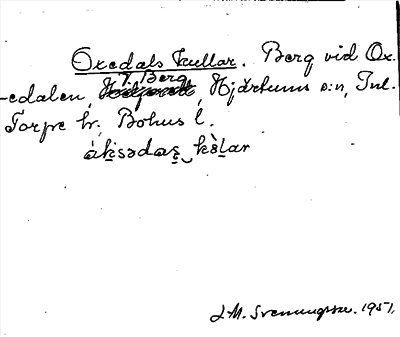 Oxedals kullar. Berg vid Ox-
-edalen, T. Berg, Hjärtums s:n, Inl.
Torpe hr, Bohus l.
áksədas̱ kèḻar
J.M. Svenungsson. 1951.